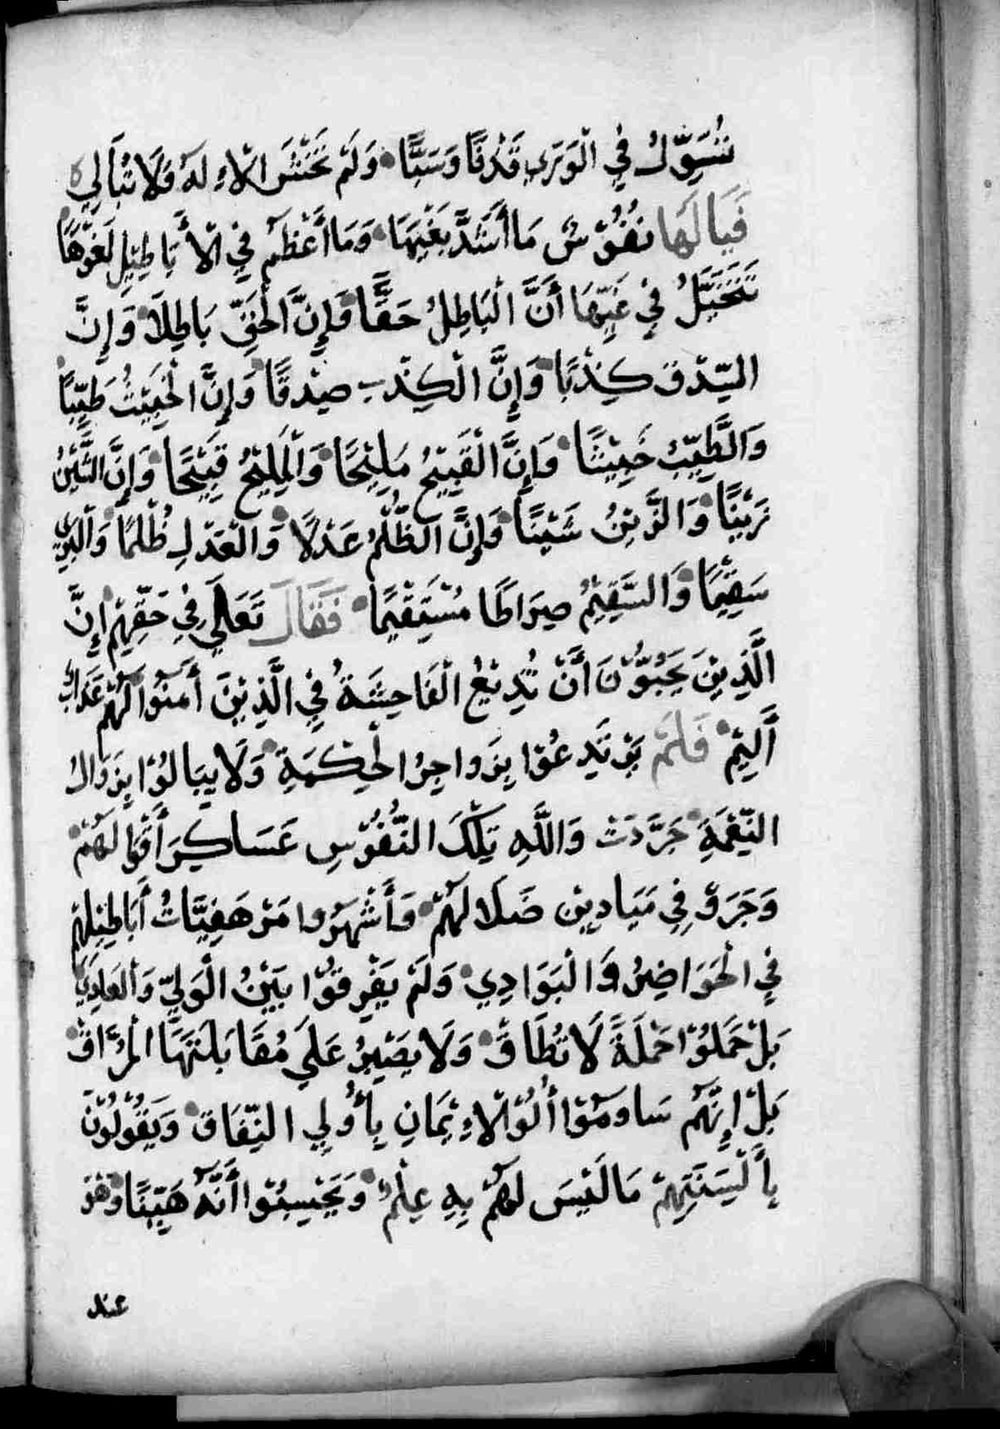 تُسَوِّلُ فِي الْوَرَى قَذْفًا وَسَبًّا وَلَمْ تَخْشَ الْاءِلَهَ وَلَا تُبَالِي
فَيَالَهَا نُفُوْسٌ مَا أَشَدَّ بَغْيَهَا وَمَا أَعْظَمَ فِي الْأَبَاطِيْلِ لَغْوَهَا
تَتَخَيَّلُ فِي غَيِّهَا أَنَّ الْبَاطِلُ حَقًّا وَإِنَّ الْحَقِّ بَاطِلًا وَإِنَّ
السِّدْقَ كِذْبًا وَإِنَّ الْكِذْبِ صِدْقًا وَإِنَّ الْخَبِيْثُ طَيِّبًا
وَالطَّيِّبُ خَبِيْثًا وَإِنَّ الْقَبِيْحُ مَلِيْحًا وَالْمَلِيْحُ قَبِيْحًا وَإِنَّ الشَّيْنُ
زَيْنًا وَالزَّيْنُ شَيْنًا وَإِنَّ الظُّلْمُ عَدْلًا وَالْعَدْلِ ظُلْمًا
سَقِيْمًا وَالسَّقِيْمُ صِرَاطًا مُسْتَقْيِمًا فَقَالَ تَعَالَي فِي حَقِّهِمْ إِنَّ
الَّذِيْنَ يُحِبُّوْنَ أَنْ تُدِيْعُ الْفَاحِشَةُ فِي الَّذِيْنَ أَمَنُوْا لَهُمْ عَذَابٌ
أَلِيْمٌ فَلَمْ يَرْتَدِعُوْا بِزَواجِرُ الْحِكْمَةِ وَلَا يبَالُوْا بِزَوَالُ
النِّعْمَةِ جَرَّدَتْ وَاللَّهِ تِلْكَ النُّفُوْسِ عَسَاكِرَ أَقْوَالَهُمْ
وَجَرَوْ فِي مَيَادِيْنِ ضَلَالهُمْ وَأَشْهَرُوا مَرْهَفِيَّاتُ أَبَاطِيْلِهِمْ
فِي الْحَوَاضِرُ وَالْبَوَادِي وَلَمْ يَفْرِقُوْا بَيْنُ الْوَلِيِّ وَالْعَادِي
بَلْ حَمَلُوْا حَمْلَةً لَا تُطَاقْ وَلَا يصْبِرُ عَلَي مُقَابَلَتِهَا الْمُرَّاقْ
بَلْ إِنَّهُمْ سَاوَمُوْا أُلُوْا الْاءِيْمَانِ بِأُولِي النِّفَاقْ وَيَقُوْلُوْنَ
بِأَلْسِنَتِهِمْ مَا لَيْسَ لَهُمْ بِهِ عِلْمٌ وَيَحْسِبُوْا أَنَّهُ هَيِّنًا وَهْوَ
عند